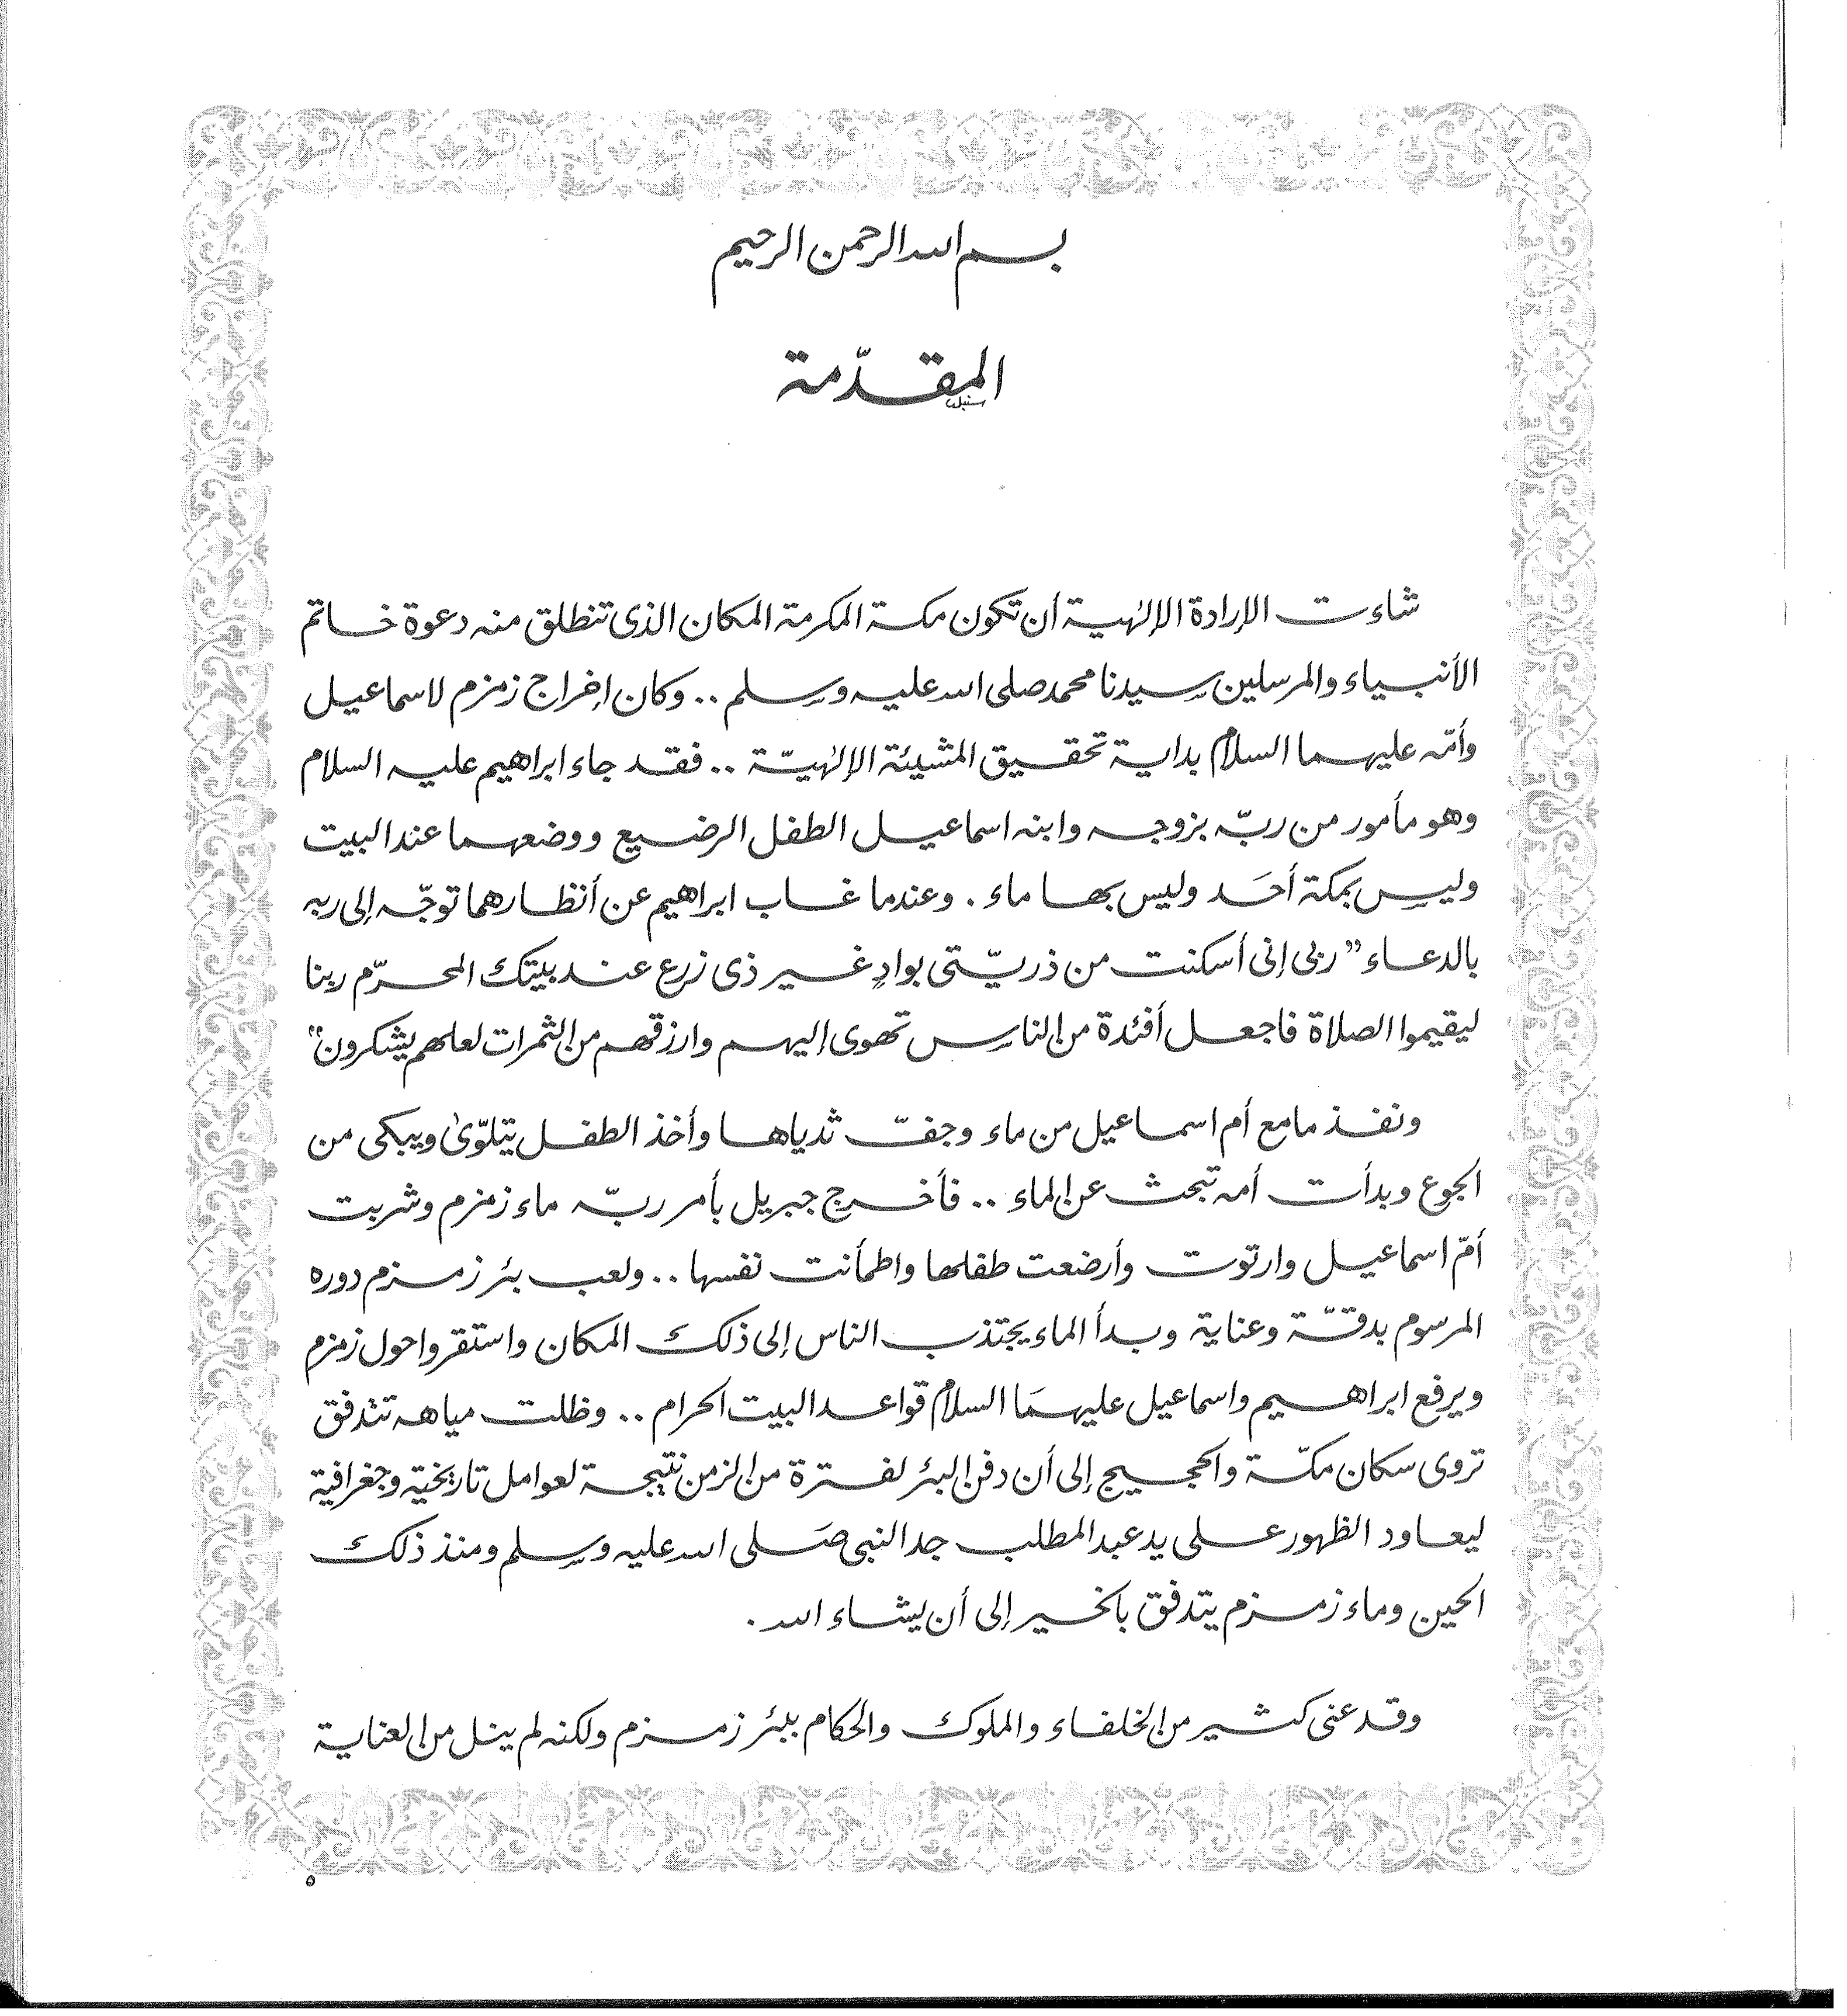 بسم الله الرحمن الرحيم
المقدّمة
شاءت الإرادة الإلٰهية أن تكون مكة المكرمة المكان الذى تنطلق منه دعوة خاتم
الأنبياء والمرسلين سيدنا محمد صلى الله عليه وسلم .. وكان إخراج زمزم لاسماعيل
وأمّه عليهما السلام بداية تحقيق المشيئة الإلٰهيّة .. فقد جاء ابراهيم عليه السلام
وهو مأمور من ربّه بزوجه وابنه اسماعيل الطفل الرضيع ووضعهما عند البيت
وليس بمكة أحَد وليس بها ماء . وعندما غاب ابراهيم عن أنظارهما توجّه إلى ربه
بالدعاء " ربى إنى أسكنت من ذريّتى بوادٍ غير ذى زرع عند بيتك المحرّم ربنا
ليقيموا الصلاة فاجعل أفئدة من الناس تهوى إليهم وارزقهم من الثمرات لعلهم يشكرون "
ونفذ مامع أم اسماعيل من ماء وجفّ ثدياها وأخذ الطفل يتلوّىٰ ويبكى من
الجوع وبدأت أمه تبحث عن الماء .. فأخرج جبريل بأمر ربّه ماء زمزم وشربت
أمّ اسماعيل وارتوت وأرضعت طفلها واطمأنت نفسها .. ولعب بئر زمزم دوره
المرسوم بدقّة وعناية وبدأ الماء يجتذب الناس إلى ذلك المكان واستقروا حول زمزم
ويرفع ابراهيم واسماعيل عليهمَا السلام قواعد البيت الحرام .. وظلت مياهه تتدفق
تروى سكان مكّة والحجيج إلى أن دفن البئر لفترة من الزمن نتيجة لعوامل تاريخية وجغرافية
ليعاود الظهور على يد عبد المطلب جد النبى صَلى الله عليه وسلم ومنذ ذلك
الحين وماء زمزم يتدفق بالخير إلى أن يشاء الله .
وقد عنى كثير من الخلفاء والملوك والحكام ببئر زمزم ولكنه لم ينل من العناية
٥